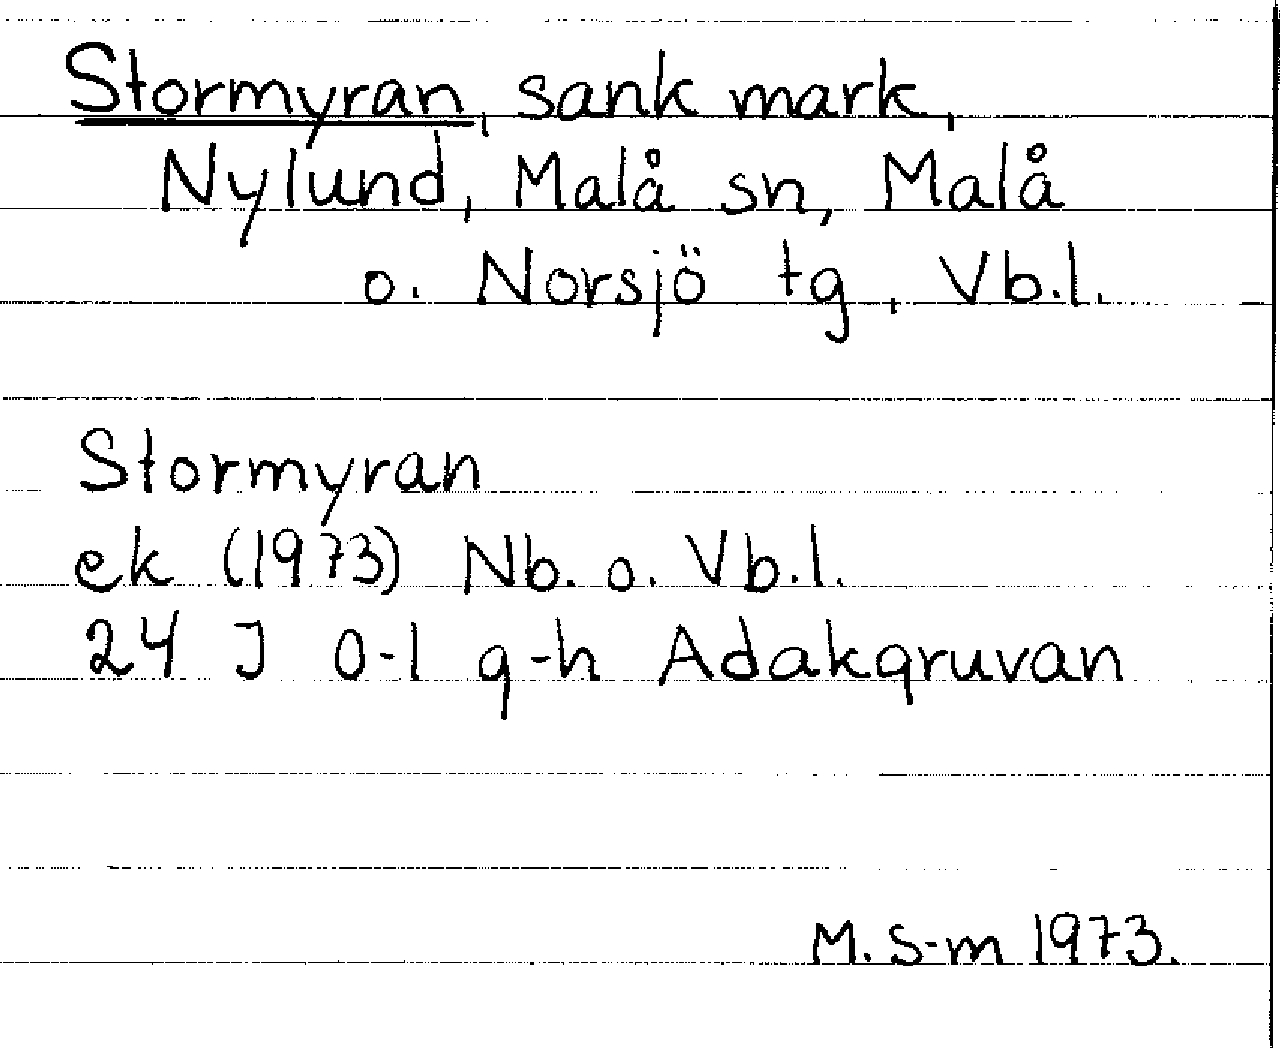 Stormyran, sank mark,
Nylund, Malå sn, Malå
o. Norsjö tg, Vb.l.
Stormyran
ek (1973) Nb. o. Vb.l.
24 J 0-1 g-h Adakgruvan
M. S-m 1973.